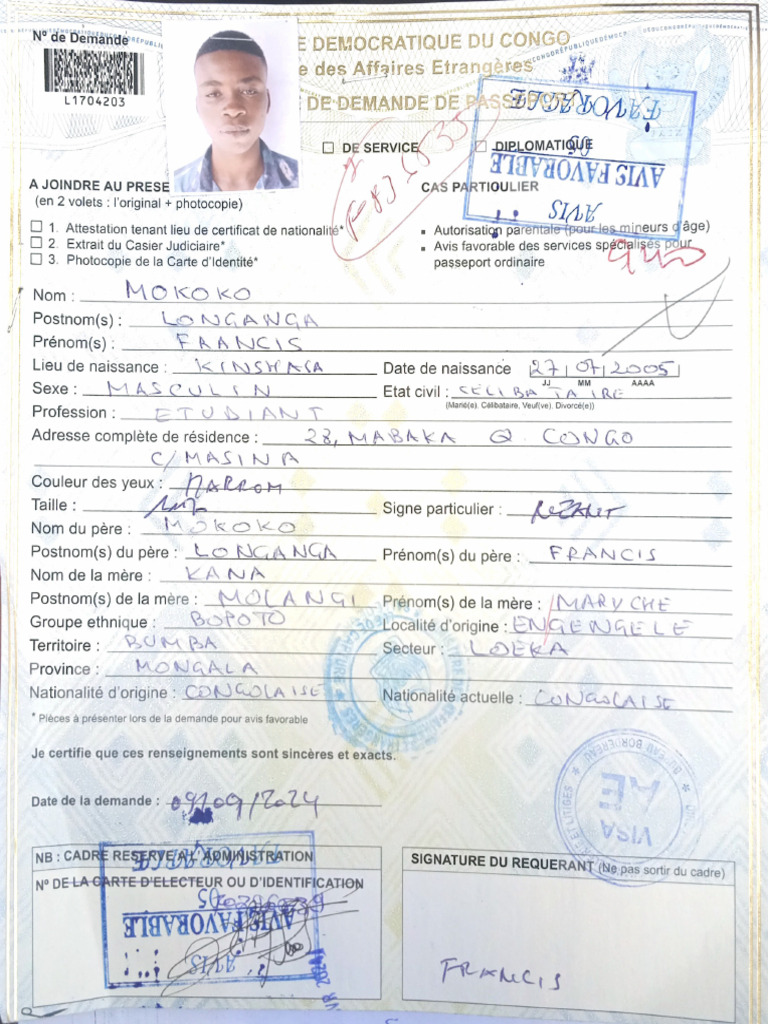 N° de Demande
L1704203
E DEMOCRATIQUE DU CONGO
e des Affaires Etrangères
DE DEMANDE DE PASSEPORT
DE SERVICE
DIPLOMATIQUE
AVIS FAVORABLE
AVIS
FAVORABLE
A JOINDRE AU PRESE
(en 2 volets : l'original + photocopie)
CAS PARTIOULIER
1. Attestation tenant lieu de certificat de nationalité*
2. Extrait du Casier Judiciaire*
3. Photocopie de la Carte d'Identité*
Autorisation parentale (pour les mineurs d'âge)
Avis favorable des services spécialisés pour
passeport ordinaire
Nom : MOKOKO
Postnom(s) : LONGANGA
Prénom(s) : FRANCIS
Lieu de naissance : KINSHASA Date de naissance 27/07/2005
JJ MM AAAA
Sexe : MASCULIN Etat civil : CELIBATAIRE
(Marié(e), Célibataire, Veuf(ve), Divorcé(e))
Profession : ETUDIANT
Adresse complète de résidence : 28, MABAKA Q. CONGO
C/MASINA
Couleur des yeux : MARROM
Taille : Signe particulier :
Nom du père : MOKOKO
Postnom(s) du père : LONGANGA Prénom(s) du père : FRANCIS
Nom de la mère : KANA
Postnom(s) de la mère : MOLANGI Prénom(s) de la mère : MARYCHE
Groupe ethnique : BOPOTO Localité d'origine : ENGENGELE
Territoire : BUMBA Secteur : LOEKA
Province : MONGALA
Nationalité d'origine : CONGOLAISE Nationalité actuelle : CONGOLAISE
* Pièces à présenter lors de la demande pour avis favorable
Je certifie que ces renseignements sont sincères et exacts.
Date de la demande : 09/09/2024
VISA
AE
NB : CADRE RESERVE A L'ADMINISTRATION
N° DE LA CARTE D'ELECTEUR OU D'IDENTIFICATION
AVIS FAVORABLE
AVIS
SIGNATURE DU REQUERANT (Ne pas sortir du cadre)
FRANCIS